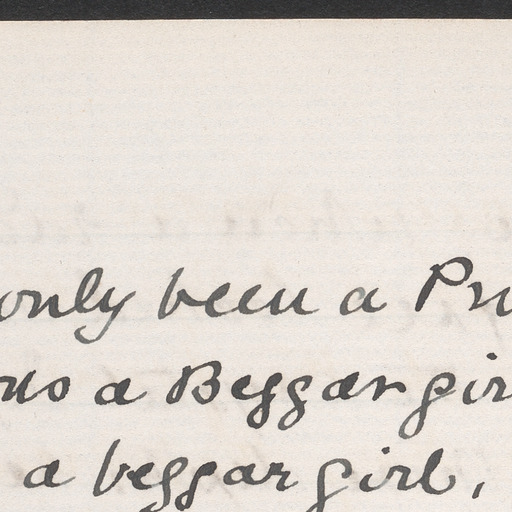 only been a Pri
us a Beggar gir
a beggar girl,